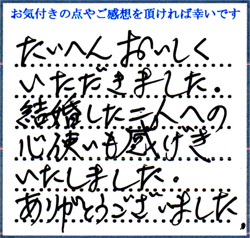 お気付きの点やご感想を頂ければ幸いです
たいへんおいしく
いただきました。
結婚した二人への
心使いも感げき
いたしました。
ありがとうございました。